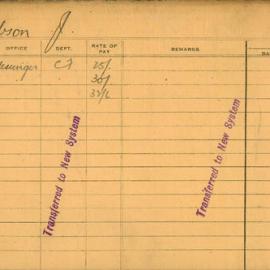 bson J.
OFFICE DEPT. RATE OF PAY REMARKS
essenger 25/.
30/.
Transferred to New System
Transferred to New System